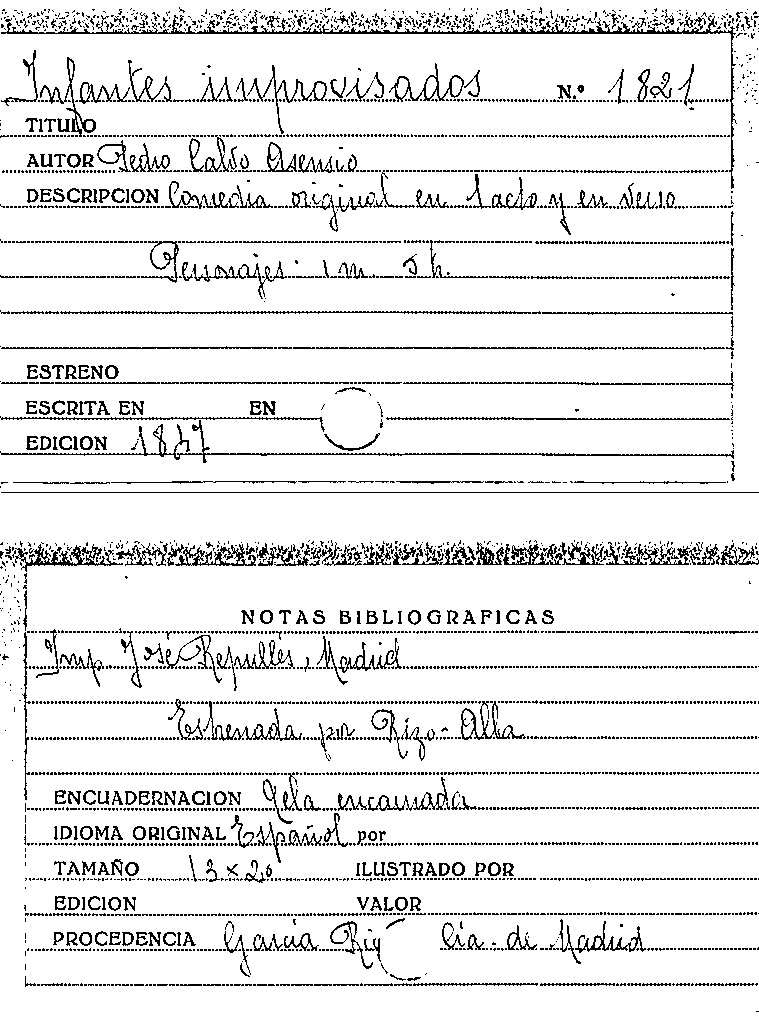 Infantes improvisados N.º 1821
TITULO
AUTOR Pedro Calvo Asensio
DESCRIPCION Comedia original en 1 acto y en verso
Personajes: 1 m. 5 h.
ESTRENO
ESCRITA EN EN
EDICION 1847
NOTAS BIBLIOGRAFICAS
Imp. José Repullés, Madrid
Estrenada por Rizo-Alba
ENCUADERNACION Tela encarnada
IDIOMA ORIGINAL Español por
TAMAÑO 13 x 20 ILUSTRADO POR
EDICION VALOR
PROCEDENCIA García Cia. de Madrid